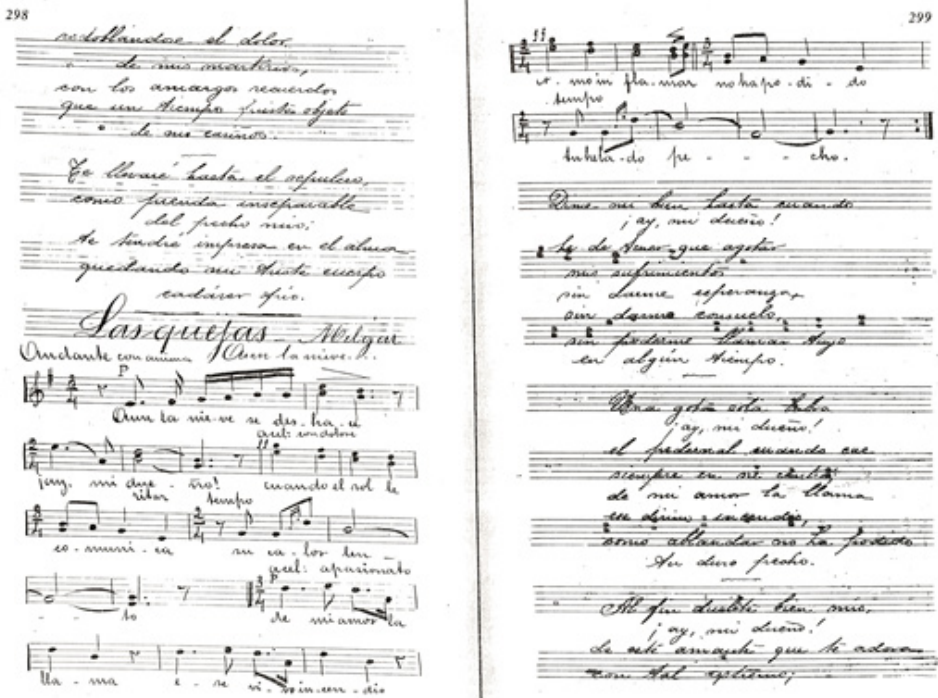 298
redoblándose el dolor
de mis martirios,
con los amargos recuerdos
que un tiempo fuiste objeto
de mis cariños.
Te llevaré hasta el sepulcro,
como prenda inseparable
del pecho mío;
te tendré impresa en el alma
quedando mi triste cuerpo
cadáver frío.
Las quejas - Melgar
Andante con anima Aun la nieve...
P
Aun la nie-ve se des-ha-ce
acel: con dolore
¡ay, mi due-ño! cuando el sol le
ritar tempo
co-muni-ca su ca-lor len-
acel: apasionato
- - to de mi amor la
lla-ma e-se vi-vo in-cen-dio
299
mo in fla-mar no ha po-di-do
tempo
tu hela-do pe - - - cho.
Dime mi bien hasta cuando
¡ay, mi dueño!
he de tener que agotar
mis sufrimientos
sin darme esperanza,
sin darme consuelo,
sin poderme llamar tuyo
en algún tiempo.
Una gota sola
¡ay, mi dueño!
el pedernal cuando cae
siempre en su
de mi amor la llama
ese divino incendio,
como ablandar no ha podido
tu duro pecho.
Al fin
bien mío,
¡ay, mi dueño!
de este amante que te adora
con tal extremo;